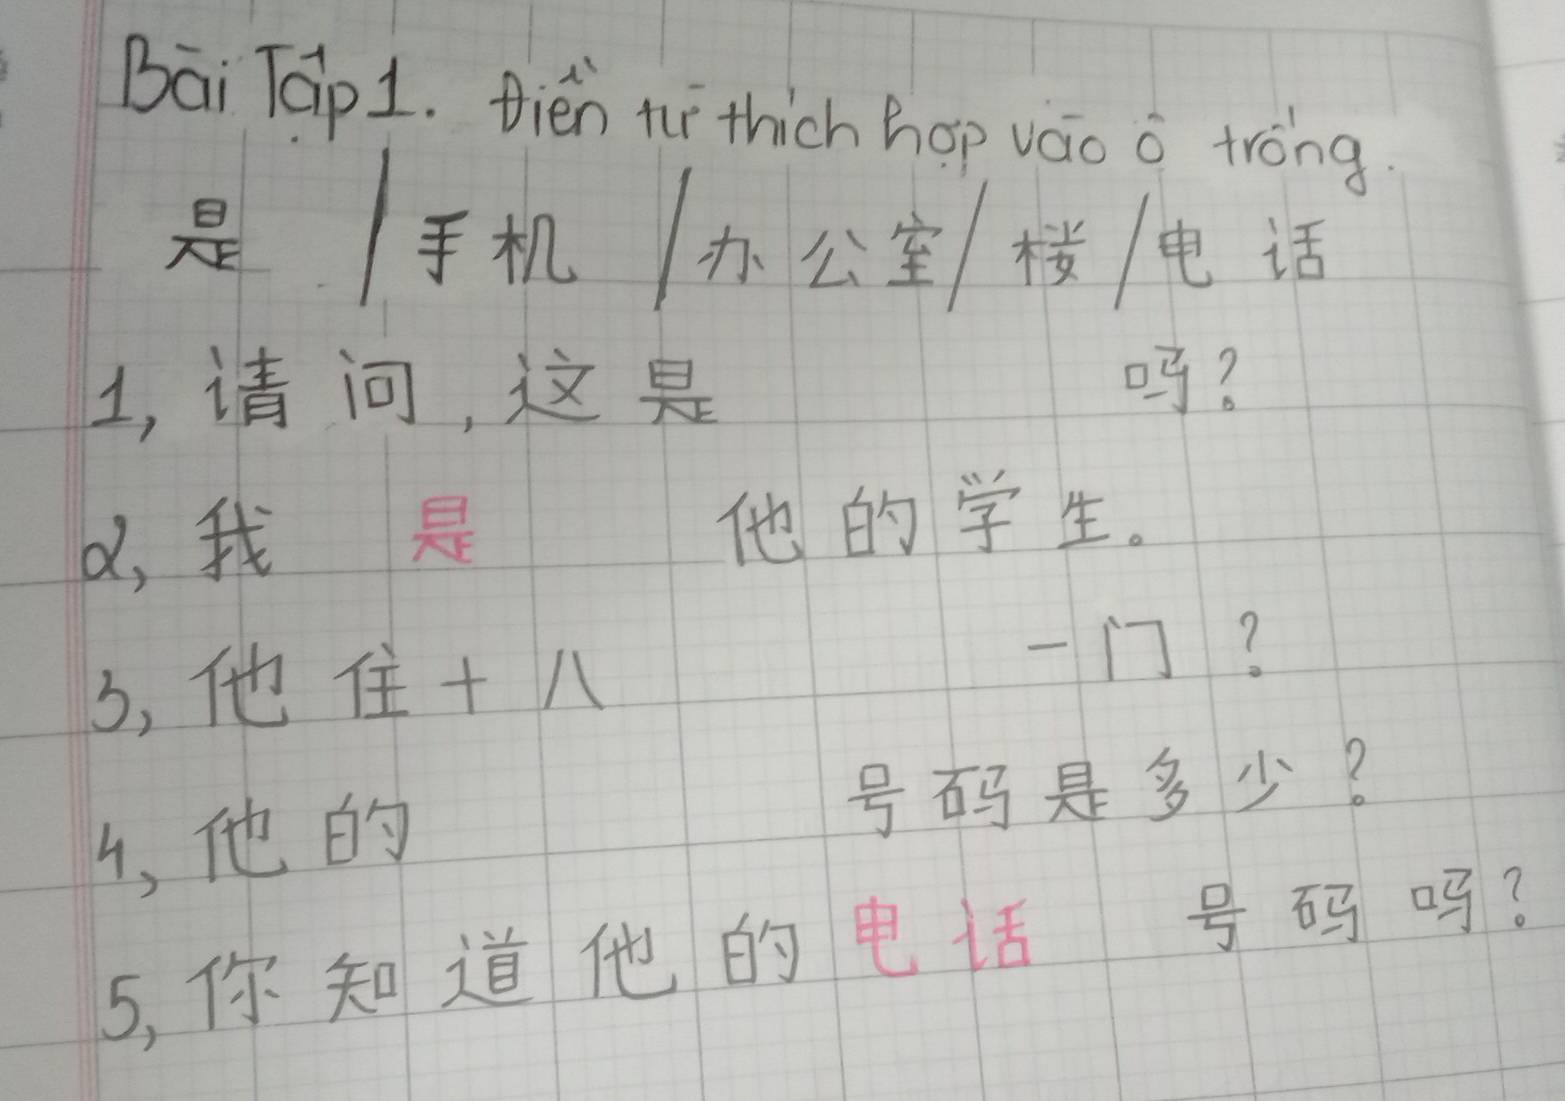 Bài Tập 1. Điền từ thích hợp vào ô trống.
是 / 手机 / 办公室 / 楼 / 电话
1, 请问, 这是 吗?
2, 我 是 他的学生。
3, 他住十八 一门?
4, 他的 号码是多少?
5, 你知道他的电话 号码吗?